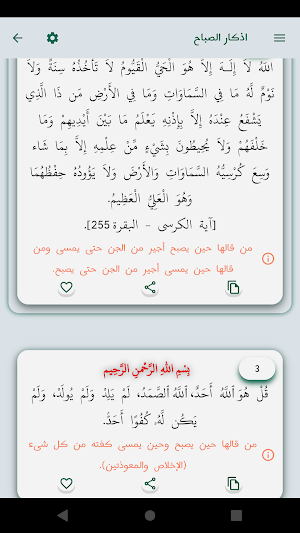 اذكار الصباح
اللهُ لاَ إِلَـهَ إِلاَّ هُوَ الْحَيُّ الْقَيُّومُ لاَ تَأْخُذُهُ سِنَةٌ وَلاَ
نَوْمٌ لَّهُ مَا فِي السَّمَاوَاتِ وَمَا فِي الأَرْضِ مَن ذَا الَّذِي
يَشْفَعُ عِنْدَهُ إِلاَّ بِإِذْنِهِ يَعْلَمُ مَا بَيْنَ أَيْدِيهِمْ وَمَا
خَلْفَهُمْ وَلاَ يُحِيطُونَ بِشَيْءٍ مِّنْ عِلْمِهِ إِلاَّ بِمَا شَاء
وَسِعَ كُرْسِيُّهُ السَّمَاوَاتِ وَالأَرْضَ وَلاَ يَؤُودُهُ حِفْظُهُمَا
وَهُوَ الْعَلِيُّ الْعَظِيمُ.
[آية الكرسى - البقرة 255].
من قالها حين يصبح أجير من الجن حتى يمسى ومن
قالها حين يمسى أجير من الجن حتى يصبح.
3
بِسْمِ اللهِ الرَّحْمنِ الرَّحِيم
قُلْ هُوَ ٱللَّهُ أَحَدٌ، ٱللَّهُ ٱلصَّمَدُ، لَمْ يَلِدْ وَلَمْ يُولَدْ، وَلَمْ
يَكُن لَّهُۥ كُفُوًا أَحَدٌۢ.
من قالها حين يصبح وحين يمسى كفته من كل شىء
(الإخلاص والمعوذتين).